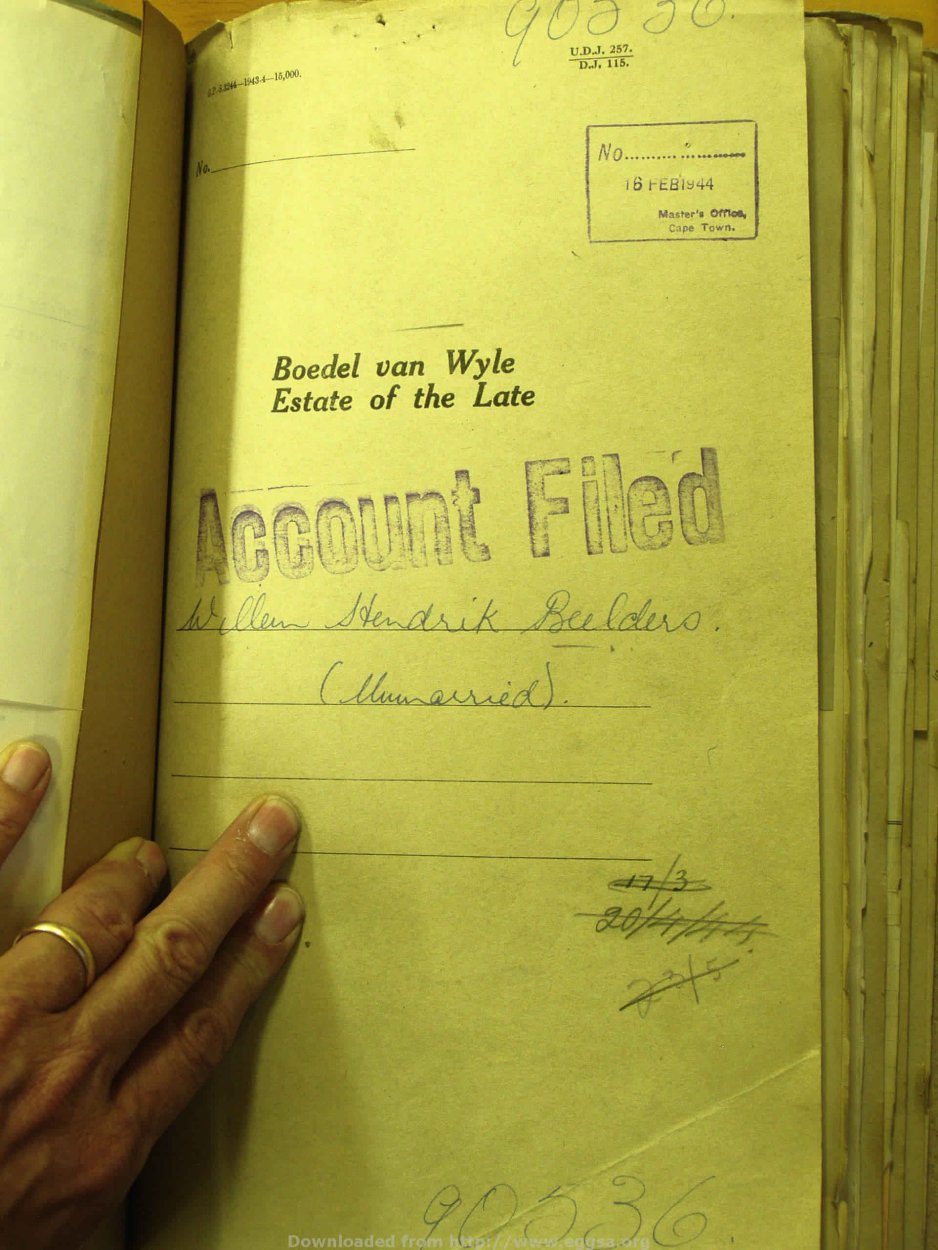 90536.
U.D.J. 257.
D.J. 115.
G.P.-S.3244—1943-4—15,000.
No.
No.
16 FEB 1944
Master's Office,
Cape Town.
Boedel van Wyle
Estate of the Late
Account Filed
Willem Hendrik Beelders.
(Unmarried).
17/3
20/4/44.
23/5
90536
Downloaded from http://www.eggsa.org